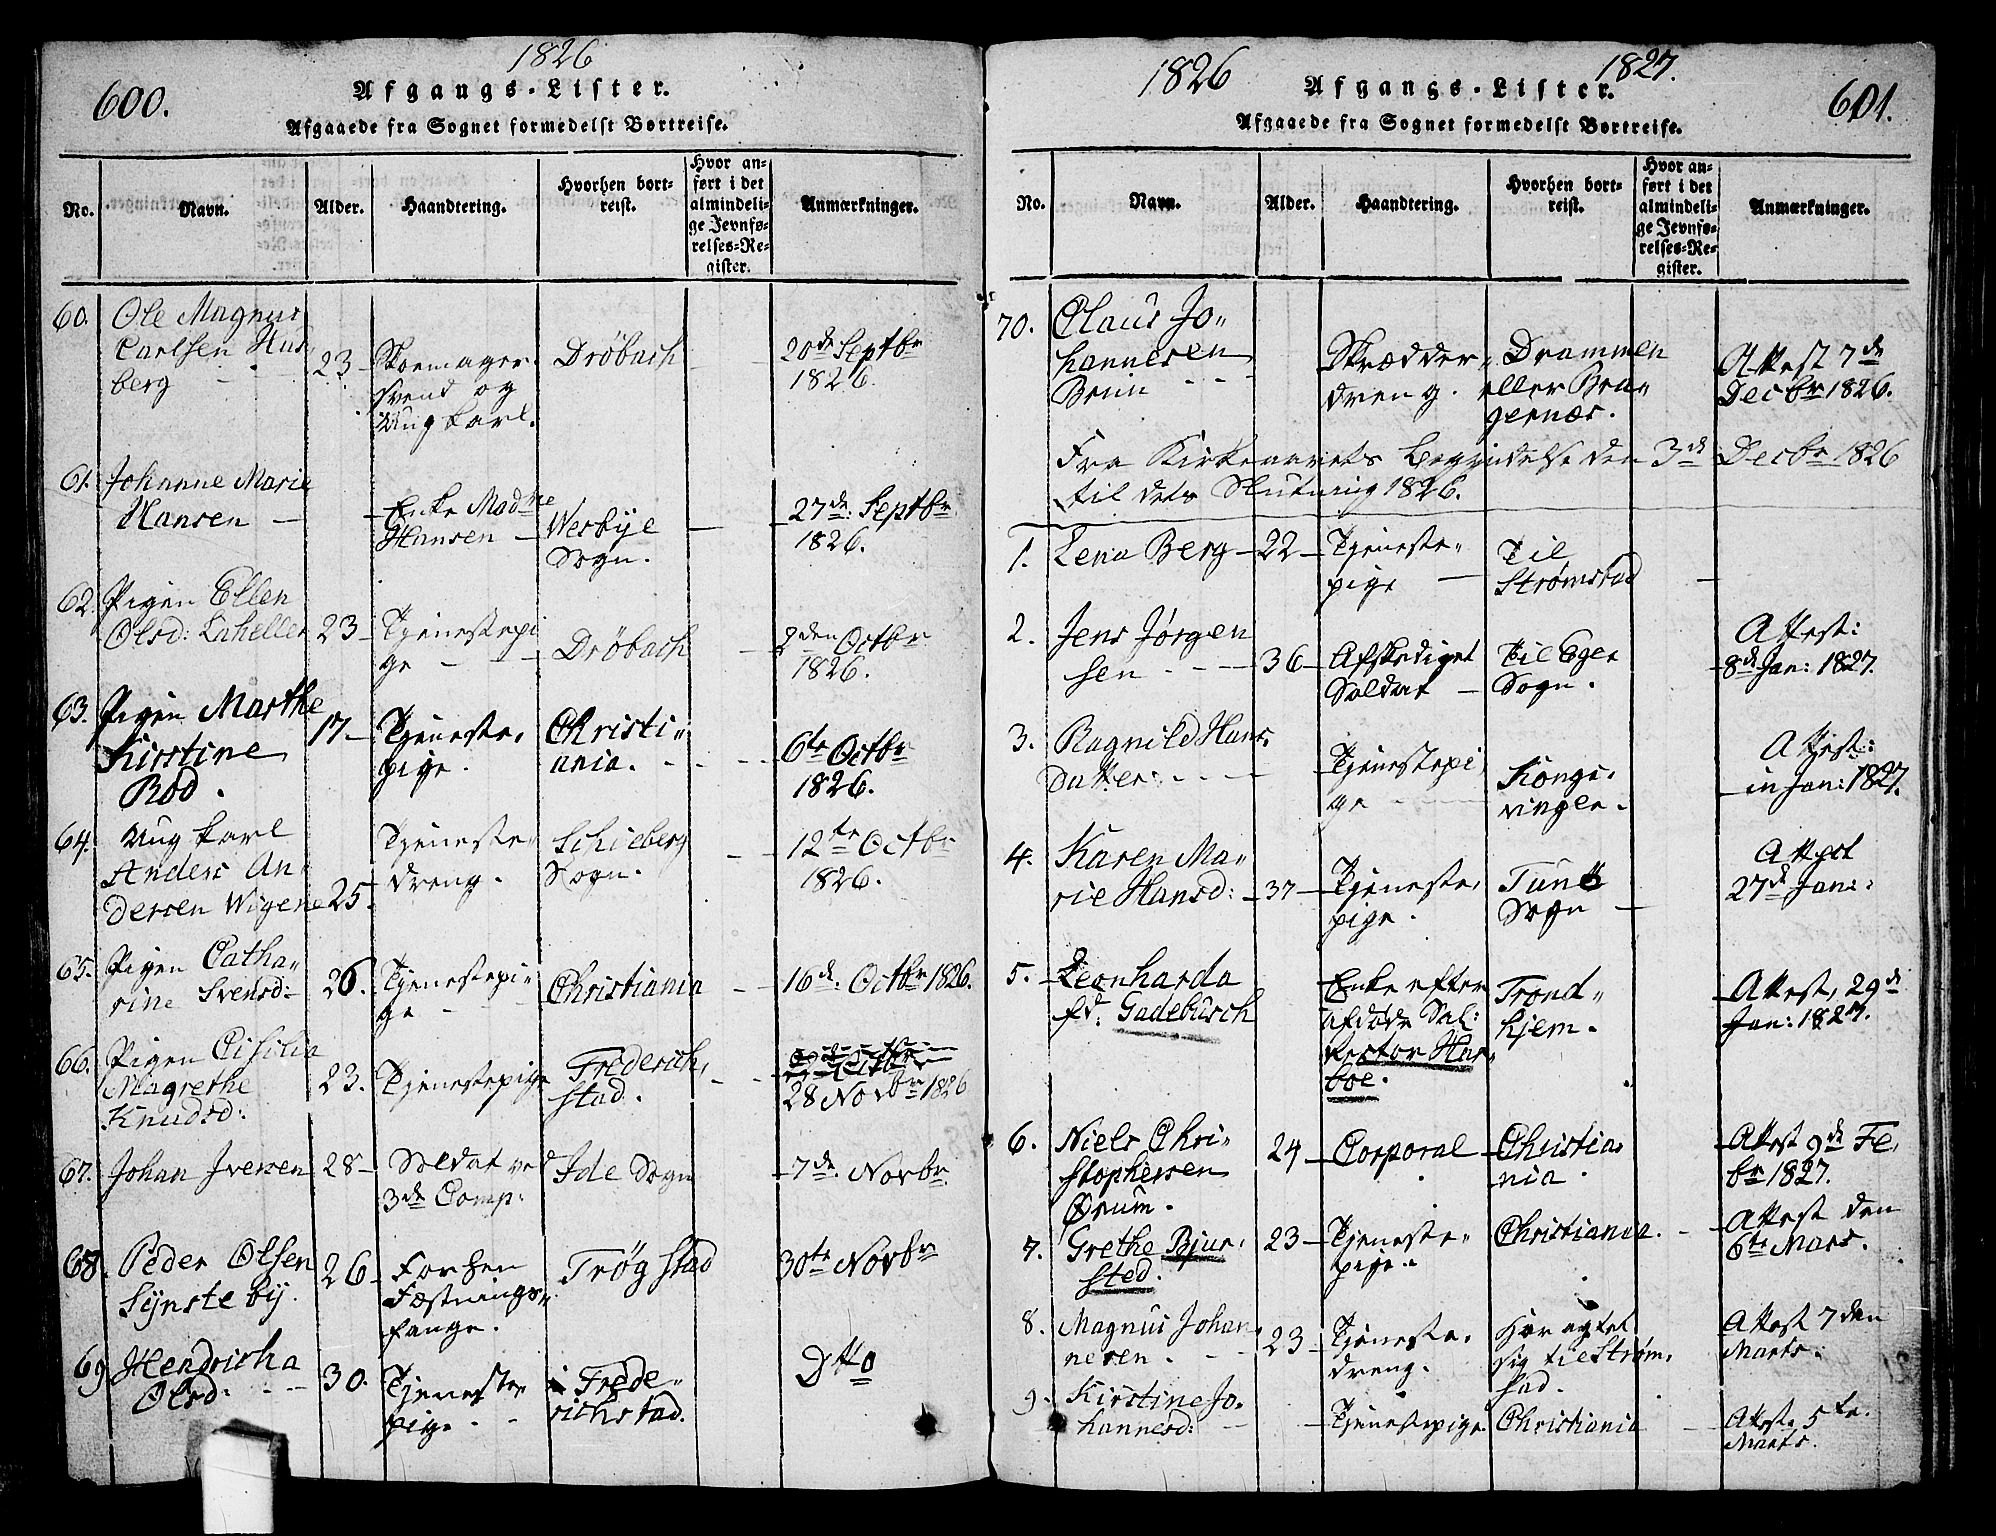 1826
600.
Afgangs-Lister.
Afgaaede fra Sognet formedelst Bortreise.
No.
Navn.
Alder.
Haandtering.
Hvorhen bort-
reist.
Hvor an-
ført i det
almindeli-
ge Jevnfø-
relses-Re-
gister.
Anmærkninger.
60.
Ole Magnus
Carlsen Hus,
berg
23
Skomager
svend og
Ungkarl.
Drøbach
20de Septbr
1826.
61.
Johanne Marie
Hansen
Enke Madme
Hansen
Wesbye
Sogn.
27de: Septbr
1826.
62.
Pigen Ellen
Olsd: Laheller
23
Tjenestepi
ge
Drøbach
2den Octbr
1826.
63.
Pigen Marthe
Kirstine
Rød.
17
Tjeneste,
pige.
Christi,,
ania.
6te Octbr
1826.
64.
Ungkarl
Anders An,
dersen Wigene
25
Tjeneste,,
dreng.
Schieberg
Sogn.
12te Octbr
1826.
65.
Pigen Catha,
rine Svensd:
26.
Tjenestepi,
ge
Christiania
16de: Octbr 1826.
66.
Pigen Cisilia
Magrethe
Knudsd:
23.
Tjenestepige
Frederich,
stad.
28 Novbr 1826
67.
Johan Iversen
28
Soldat ved
3de Comp:
Ide Sogn
7de. Novbr.
68.
Peder Olsen
Synsteby.
26
Forhen
Fæstnings,,
fange.
Trøgstad
30te Novbr
69
Hendricha
Olsd:
30.
Tjeneste
pige.
i Frede,,
richstad.
Dtto
1826
1827.
601.
Afgangs-Lister.
Afgaaede fra Sognet formedelst Bortreise.
No.
Navn.
Alder.
Haandtering.
Hvorhen bort-
reist.
Hvor an-
ført i det
almindeli-
ge Jevnfø-
relses-Re-
gister.
Anmærkninger.
70.
Claus Jo,,
hannesen
Brun
Skrædder,,
dreng.
Drammen
eller Bra,
gernæs.
Attest 7de
Decbr 1826.
Fra Kirkeaarets Begyndelse den 3de Decbr 1826
til dets Slutning 1826.
1.
Lena Berg
22
Tjeneste,,
pige
Til
Strømstad
2.
Jens Jørgen
sen
36
Afskediget
Soldat
Til Eger
Sogn.
Attest:
8de Jan: 1827.
3.
Ragnild Hans,
Datter:
Tjenestepi,
ge
Kongs,
vinger.
Attest:
in Jan: 1827.
4.
Karen Ma,
rie Hansd:
37
Tjeneste,
pige.
Tunø
Sogn
Attest
27de Jan:
5.
Leonharda
fd. Gadebusch
Enke efter
afdøde Sal:
Rector Har,
boe.
Trond,,
hjem.
Attest, 29de
Jan: 1827.
6.
Niels Chri,
stophersen
Ørum.
24
Corporal
Christia,
nia.
Attest 9de Fe,
br 1827.
7.
Grethe Bjur,
sted.
23
Tjeneste,,
pige.
Christiania.
Attest den
6te Mars.
8.
Magnus Johan
nesen.
23
Tjeneste,
dreng.
Har agtet
sig til Strøm,
stad.
Attest 7den
Marts.
9.
Kirstine Jo,
hannesd:
Tjenestepige.
Christiania
Attest, 5te.
Marts.